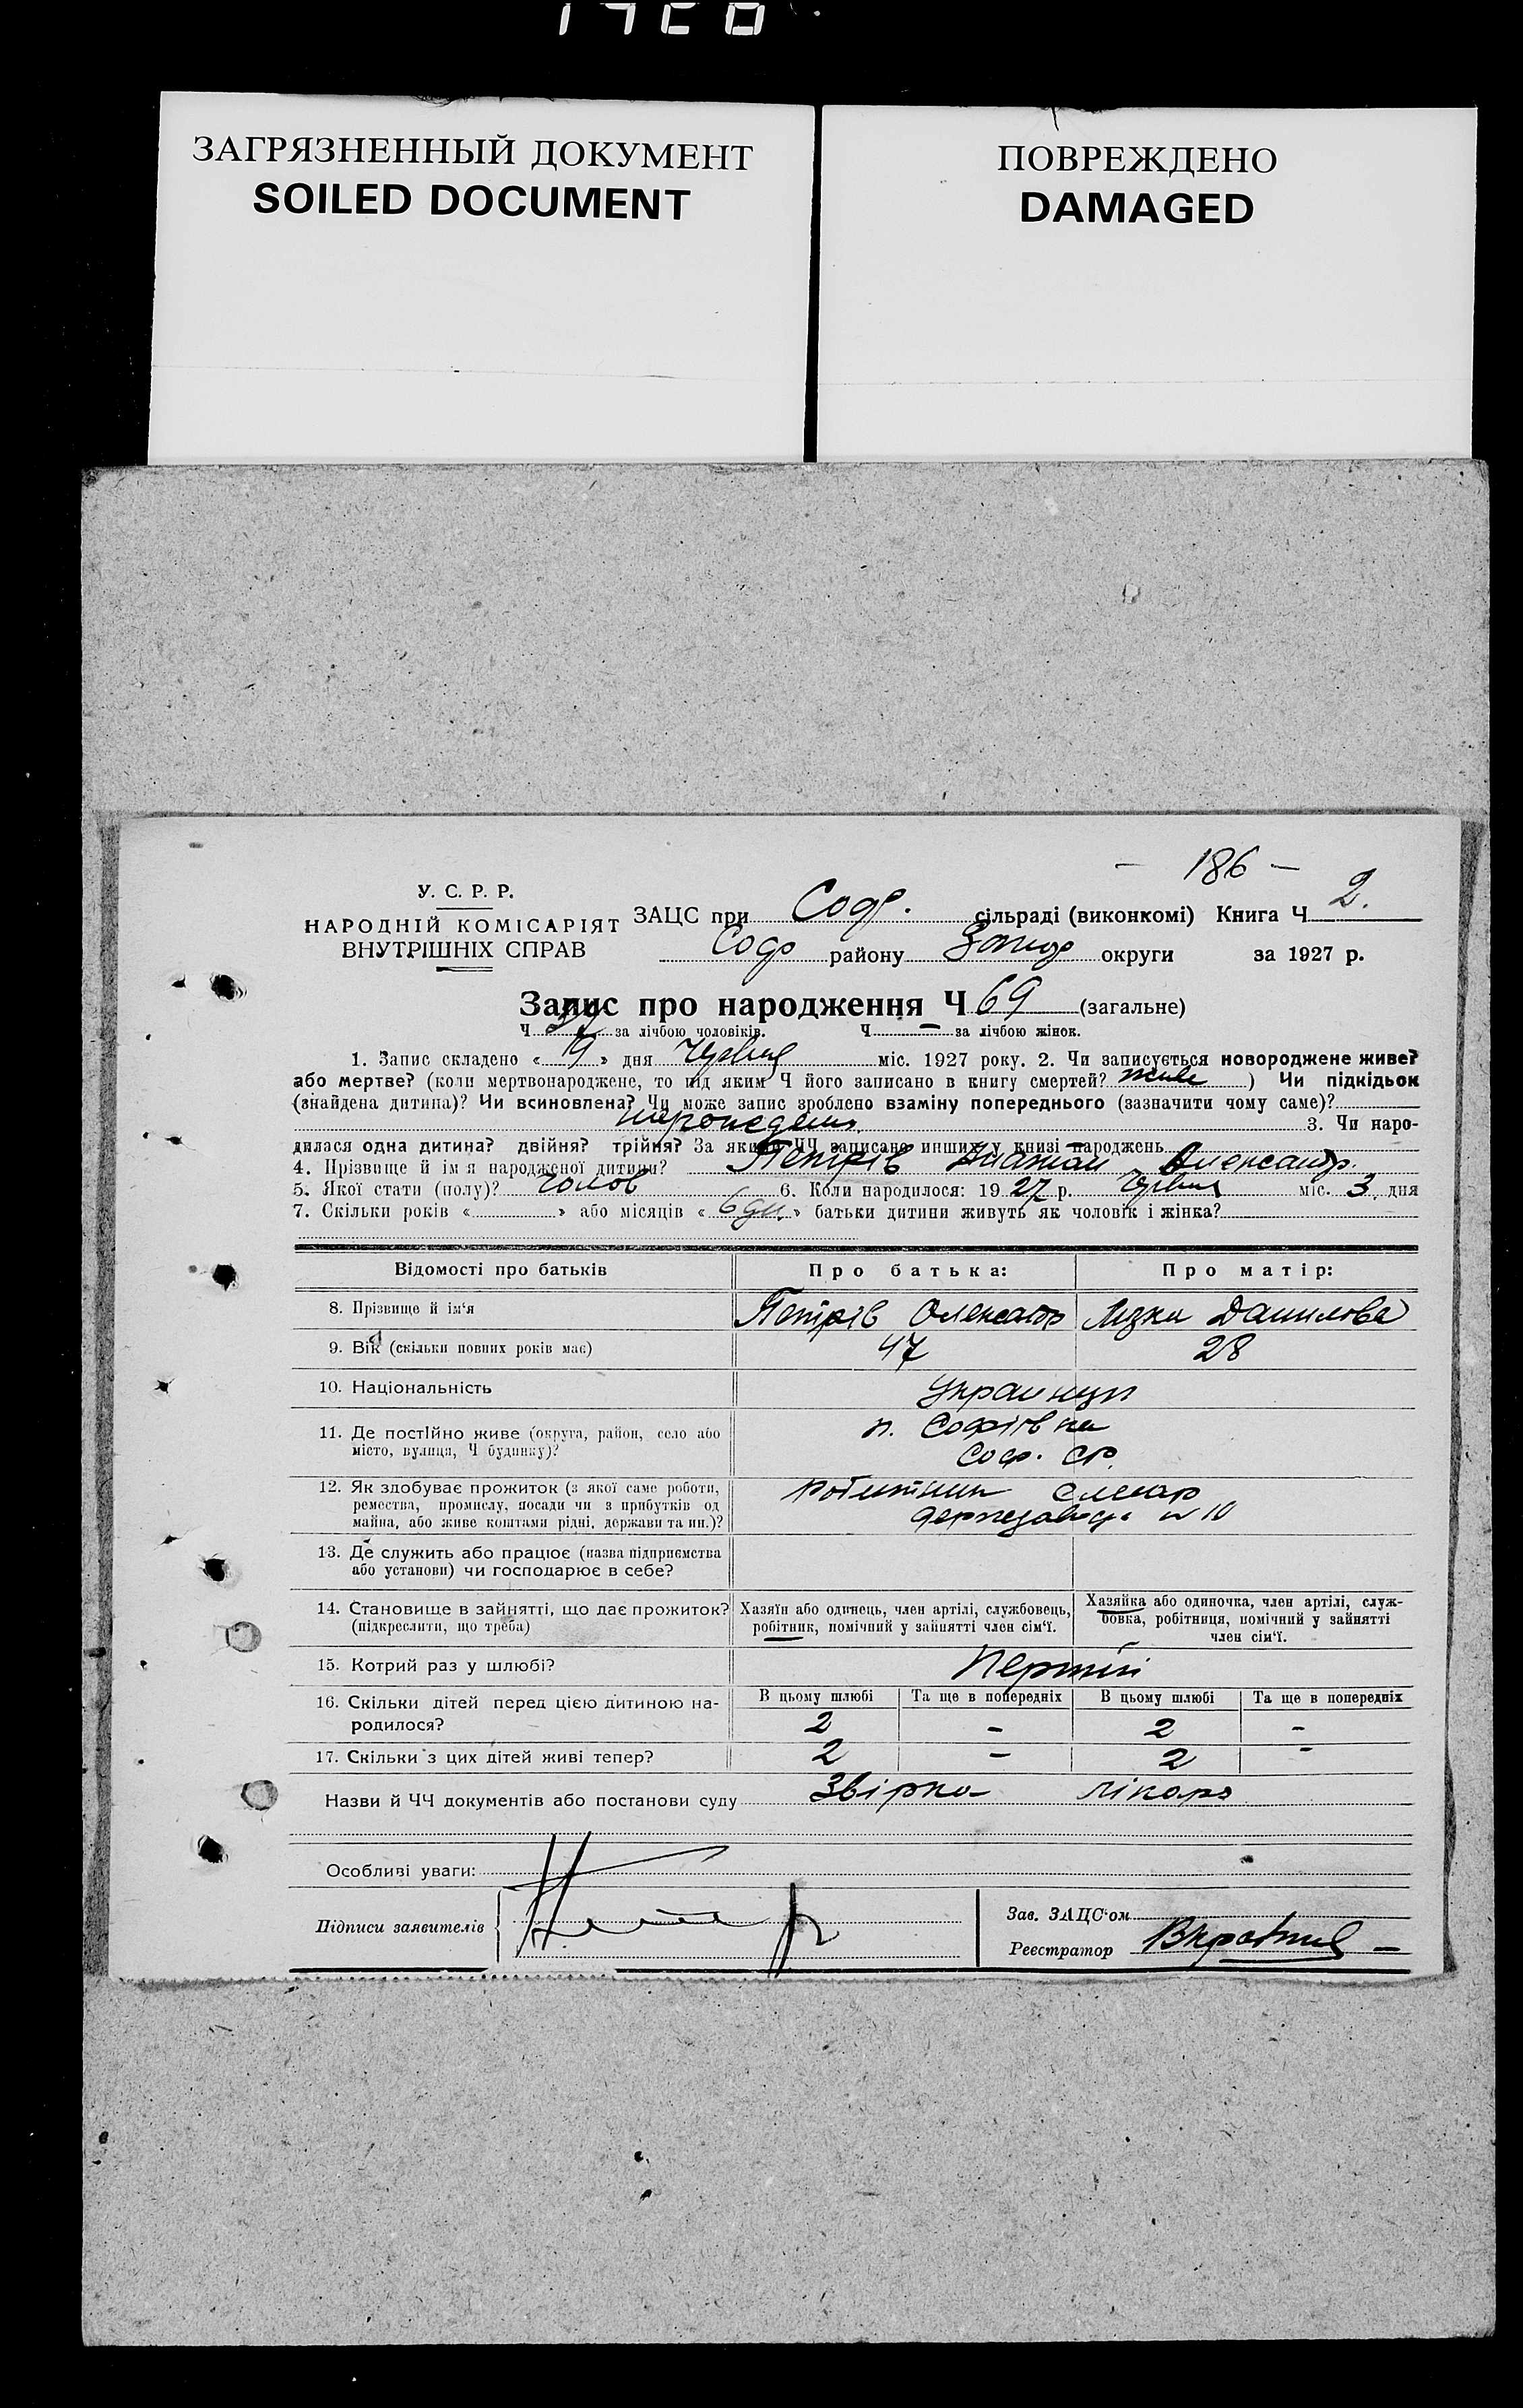 ЗАГРЯЗНЕННЫЙ ДОКУМЕНТ
SOILED DOCUMENT
ПОВРЕЖДЕНО
DAMAGED
— 186 —
У. С. Р. Р.
НАРОДНІЙ КОМІСАРІЯТ
ВНУТРІШНІХ СПРАВ
ЗАЦС при Соф. сільраді (виконкомі) Книга Ч 2.
Соф району Запор округи за 1927 р.
Запис про народження Ч 69 (загальне)
Ч за лічбою чоловіків. Ч — за лічбою жінок.
1. Запис складено « 9 » дня Червня міс. 1927 року. 2. Чи записується новороджене живе?
або мертве? (коли мертвонароджене, то під яким Ч його записано в книгу смертей? живе ) Чи підкідьок
(знайдена дитина)? Чи всиновлена? Чи може запис зроблено взаміну попереднього (зазначити чому саме)?
3. Чи наро-
дилася одна дитина? двійня? трійня? За якими ЧЧ записано инших у книзі народжень
4. Прізвище й ім'я народженої дитини? Петрів Олександр.
5. Якої стати (полу)? Чолов 6. Коли народилося: 19 27 р. Червня міс. 3. дня
7. Скільки років « » або місяців « 6 » батьки дитини живуть як чоловік і жінка?
Відомості про батьків
Про батька:
Про матір:
8. Прізвище й ім'я
Петрів Олександр
Данилова
9. Вік (скільки повних років має)
47
28
10. Національність
Украинци
11. Де постійно живе (округа, район, село або
місто, вулиця, Ч будинку)?
п. Софіївка
Соф. с/р.
12. Як здобуває прожиток (з якої саме роботи,
ремества, промислу, посади чи з прибутків од
майна, або живе коштами рідні, держави та ин.)?
Робитник слесар
держзавод. № 10
13. Де служить або працює (назва підприємства
або установи) чи господарює в себе?
14. Становище в зайнятті, що дає прожиток?
(підкреслити, що треба)
Хазяїн або одинець, член артілі, службовець,
робітник, помічний у зайнятті член сім'ї.
Хазяйка або одиночка, член артілі, служ-
бовка, робітниця, помічний у зайнятті
член сім'ї.
15. Котрий раз у шлюбі?
Перший
16. Скільки дітей перед цією дитиною на-
родилося?
В цьому шлюбі
Та ще в попередніх
В цьому шлюбі
Та ще в попередніх
2 - 2 -
17. Скільки з цих дітей живі тепер?
2 - 2 -
Назви й ЧЧ документів або постанови суду Звірка лікаря
Особливі уваги:
Підписи заявителів
Зав. ЗАЦС'ом
Реєстратор